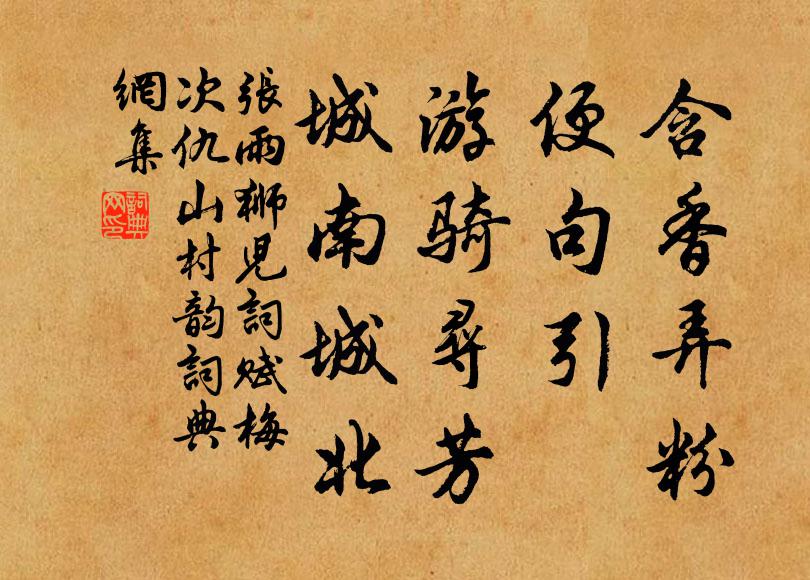 含香弄粉
便句引
游骑尋芳
城南城北
張雨獅兒詞赋梅
次仇山村韵詞典
網集
詞典
网印